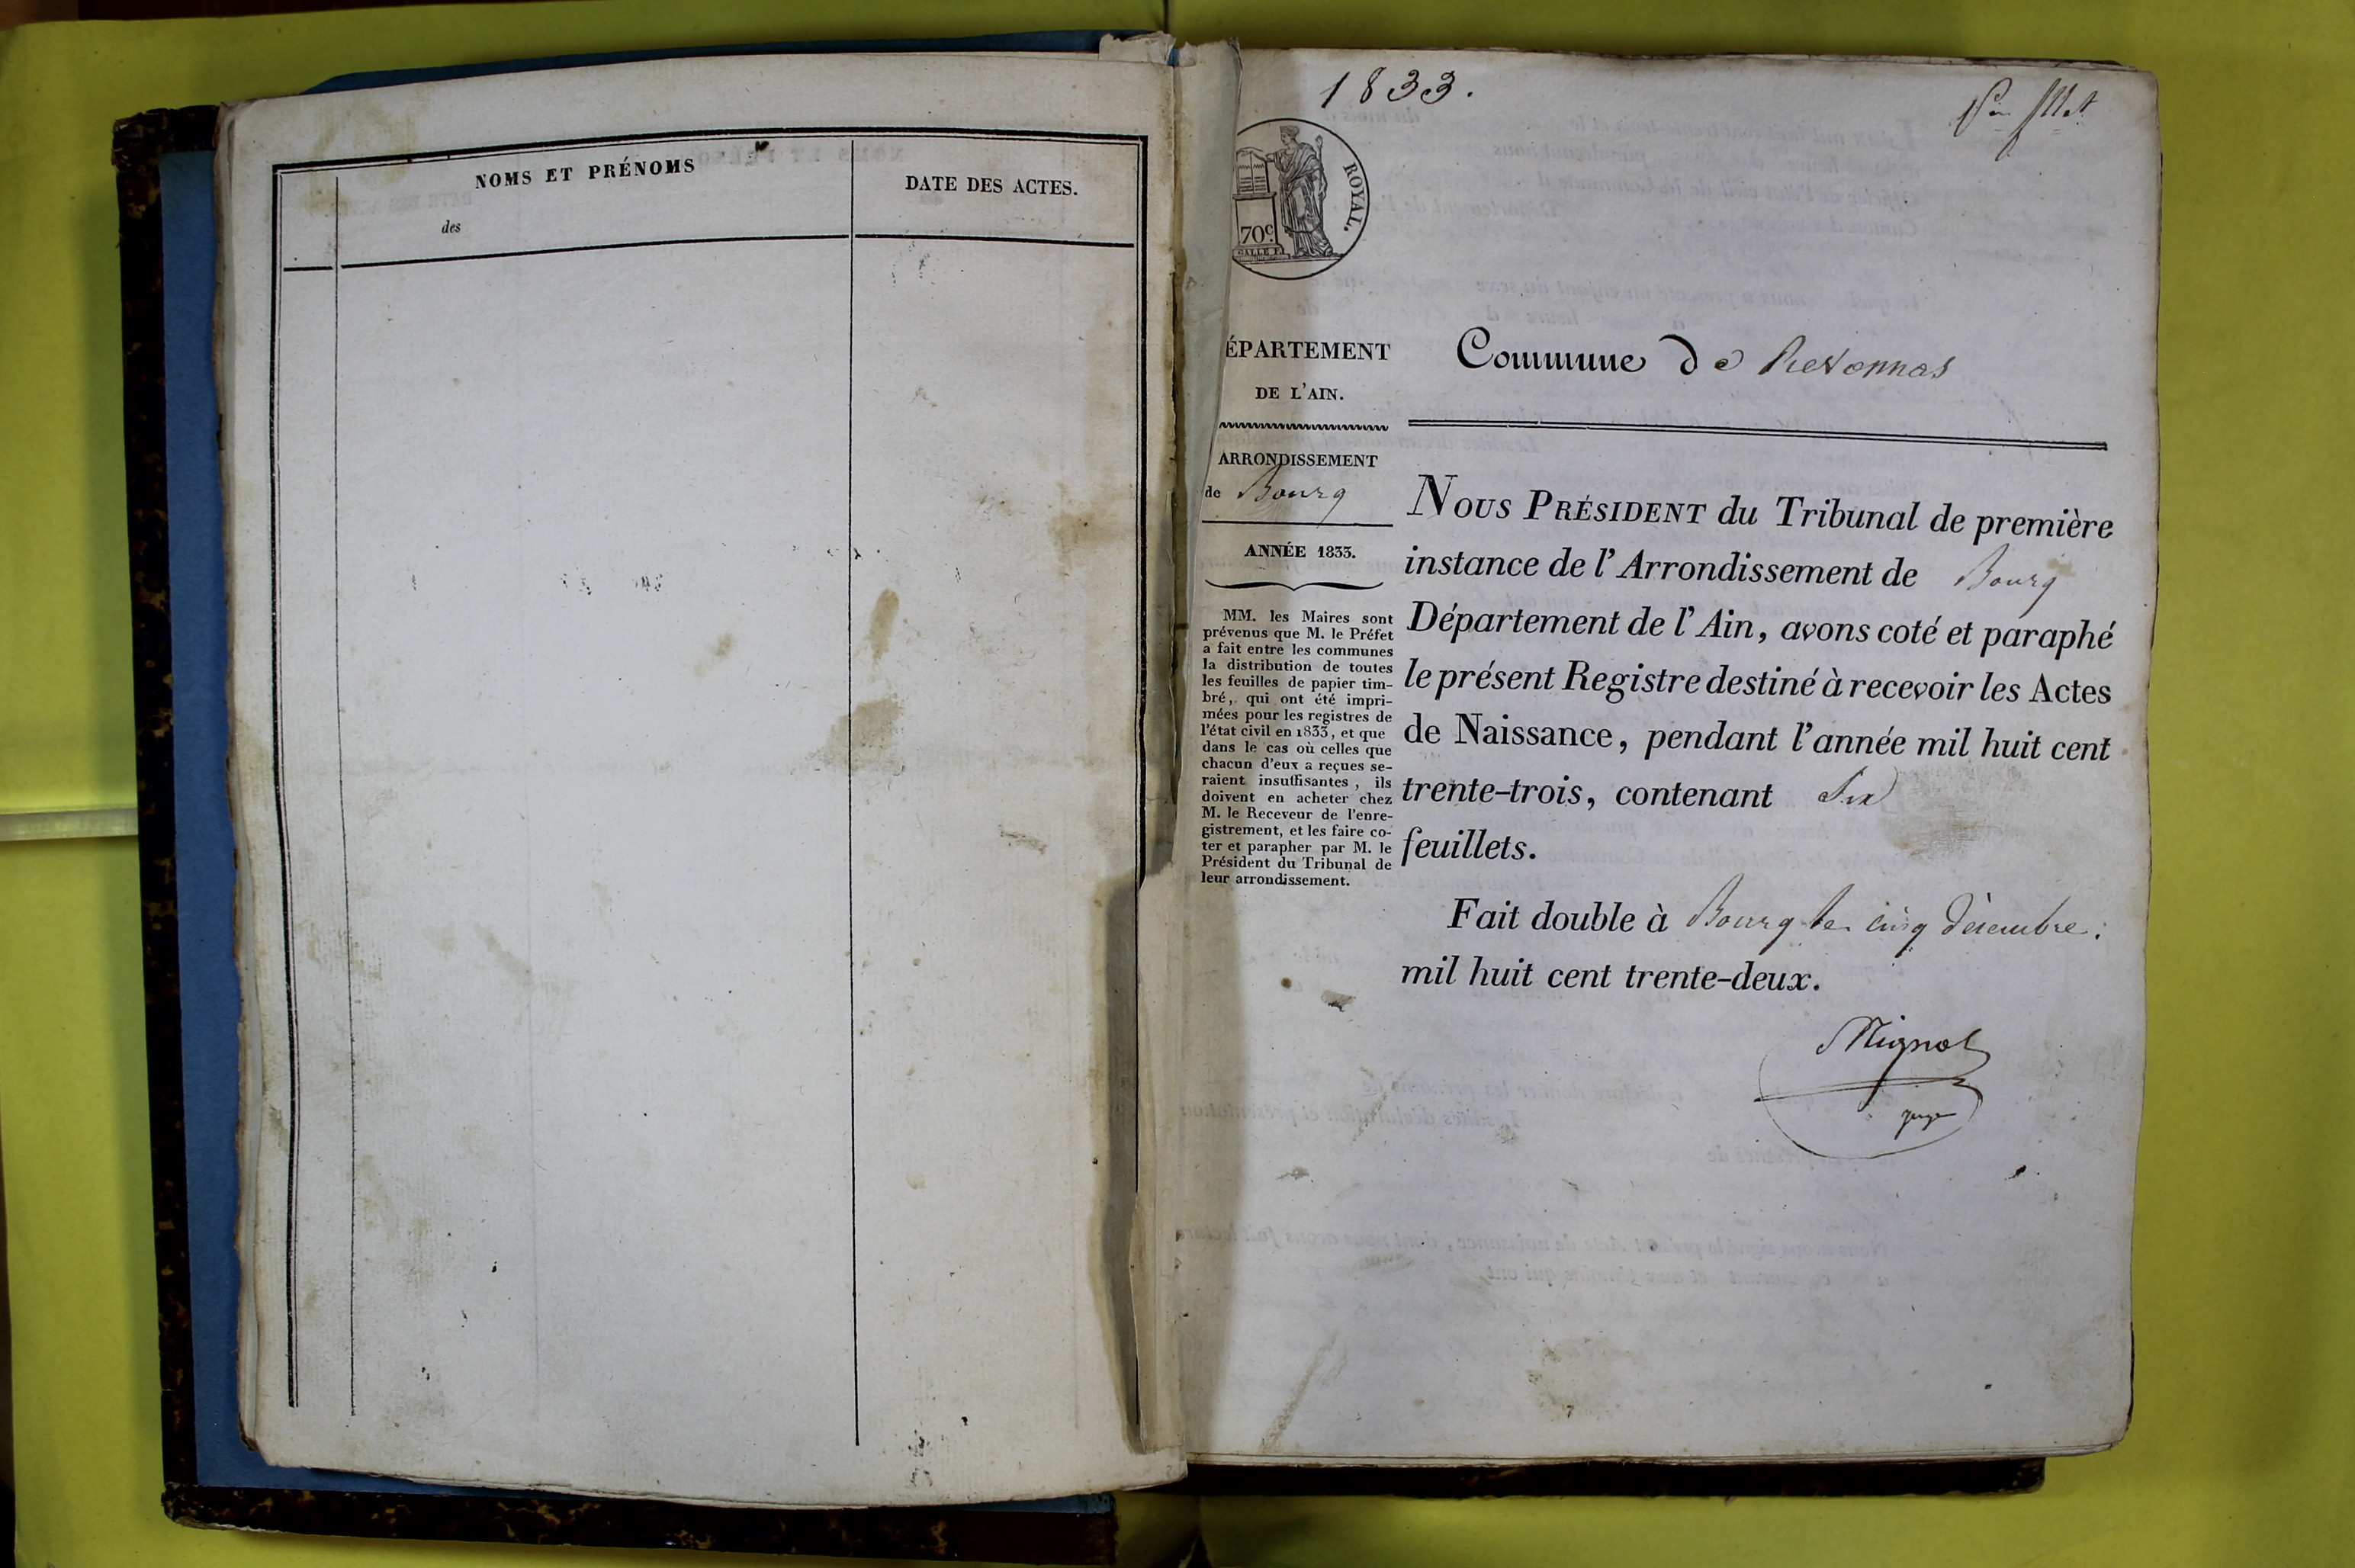 NOMS ET PRÉNOMS
des
DATE DES ACTES.
1833.
ROYAL.
70c.
ÉPARTEMENT
DE L'AIN.
ARRONDISSEMENT
de Bourg
ANNÉE 1833.
MM. les Maires sont
prévenus que M. le Préfet
a fait entre les communes
la distribution de toutes
les feuilles de papier tim-
bré, qui ont été impri-
mées pour les registres de
l'état civil en 1833, et que
dans le cas où celles que
chacun d'eux a reçues se-
raient insuffisantes, ils
doivent en acheter chez
M. le Receveur de l'enre-
gistrement, et les faire co-
ter et parapher par M. le
Président du Tribunal de
leur arrondissement.
Commune de Revonnas
NOUS PRÉSIDENT du Tribunal de première
instance de l'Arrondissement de Bourg
Département de l'Ain, avons coté et paraphé
le présent Registre destiné à recevoir les Actes
de Naissance, pendant l'année mil huit cent
trente-trois, contenant Six
feuillets.
Fait double à Bourg le cinq décembre
mil huit cent trente-deux.
Mignot
juge